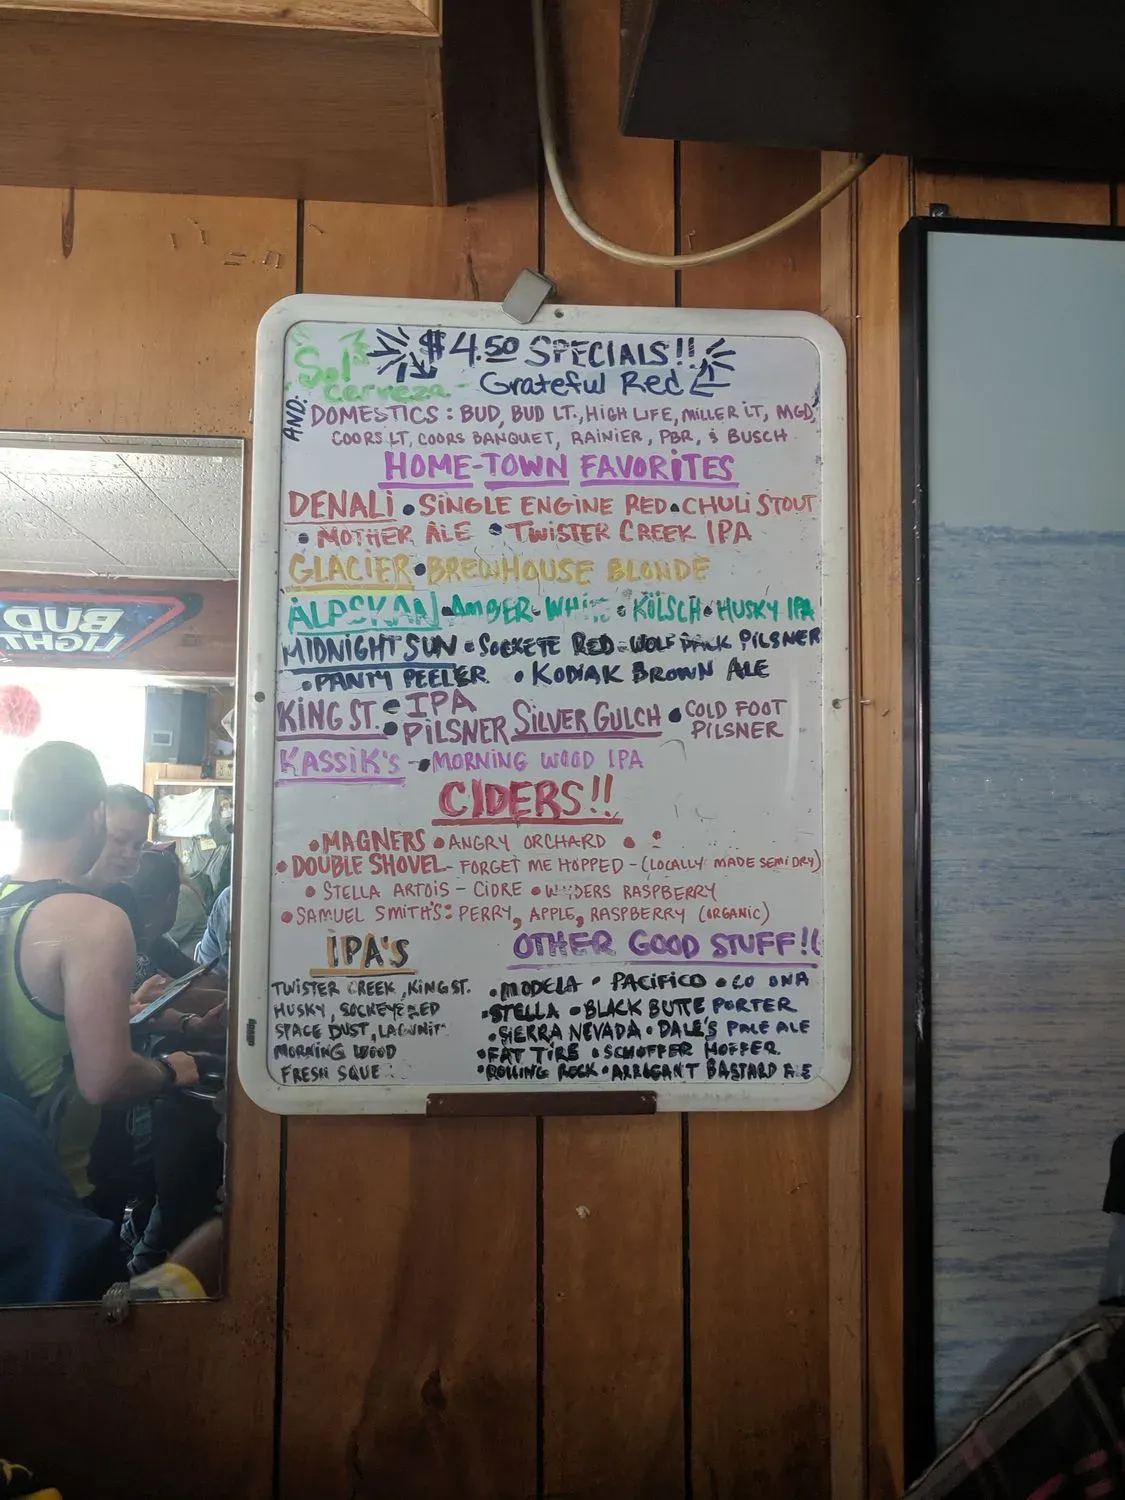 $4.50 SPECIALS!!
Sol
cerveza - Grateful Red
AND: DOMESTICS: BUD, BUD LT., HIGH LIFE, MILLER LT, MGD,
COORS LT, COORS BANQUET, RAINIER, PBR, & BUSCH
HOME-TOWN FAVORITES
DENALI • SINGLE ENGINE RED • CHULI STOUT
• MOTHER ALE • TWISTER CREEK IPA
GLACIER • BREWHOUSE BLONDE
ALASKAN • AMBER • WHITE • KÖLSCH • HUSKY IPA
MIDNIGHT SUN • SOCKEYE RED • WOLF PACK PILSNER
• PANTY PEELER • KODIAK BROWN ALE
KING ST. • IPA
• PILSNER SILVER GULCH • COLD FOOT
PILSNER
KASSIK'S • MORNING WOOD IPA
CIDERS!!
• MAGNERS • ANGRY ORCHARD •
• DOUBLE SHOVEL - FORGET ME HOPPED - (LOCALLY MADE SEMI DRY)
• STELLA ARTOIS - CIDRE • WYDERS RASPBERRY
• SAMUEL SMITH'S: PERRY, APPLE, RASPBERRY (ORGANIC)
IPA'S
TWISTER CREEK, KING ST.
HUSKY, SOCKEYE RED
SPACE DUST, LAGUNIT
MORNING WOOD
FRESH SQUE
OTHER GOOD STUFF!!
• MODELA • PACIFICO • CO ONA
• STELLA • BLACK BUTTE PORTER
• SIERRA NEVADA • DALE'S PALE ALE
• FAT TIRE • SCHOFFER HOFFER
• ROLLING ROCK • ARRAGANT BASTARD A E
BUD
LIGHT